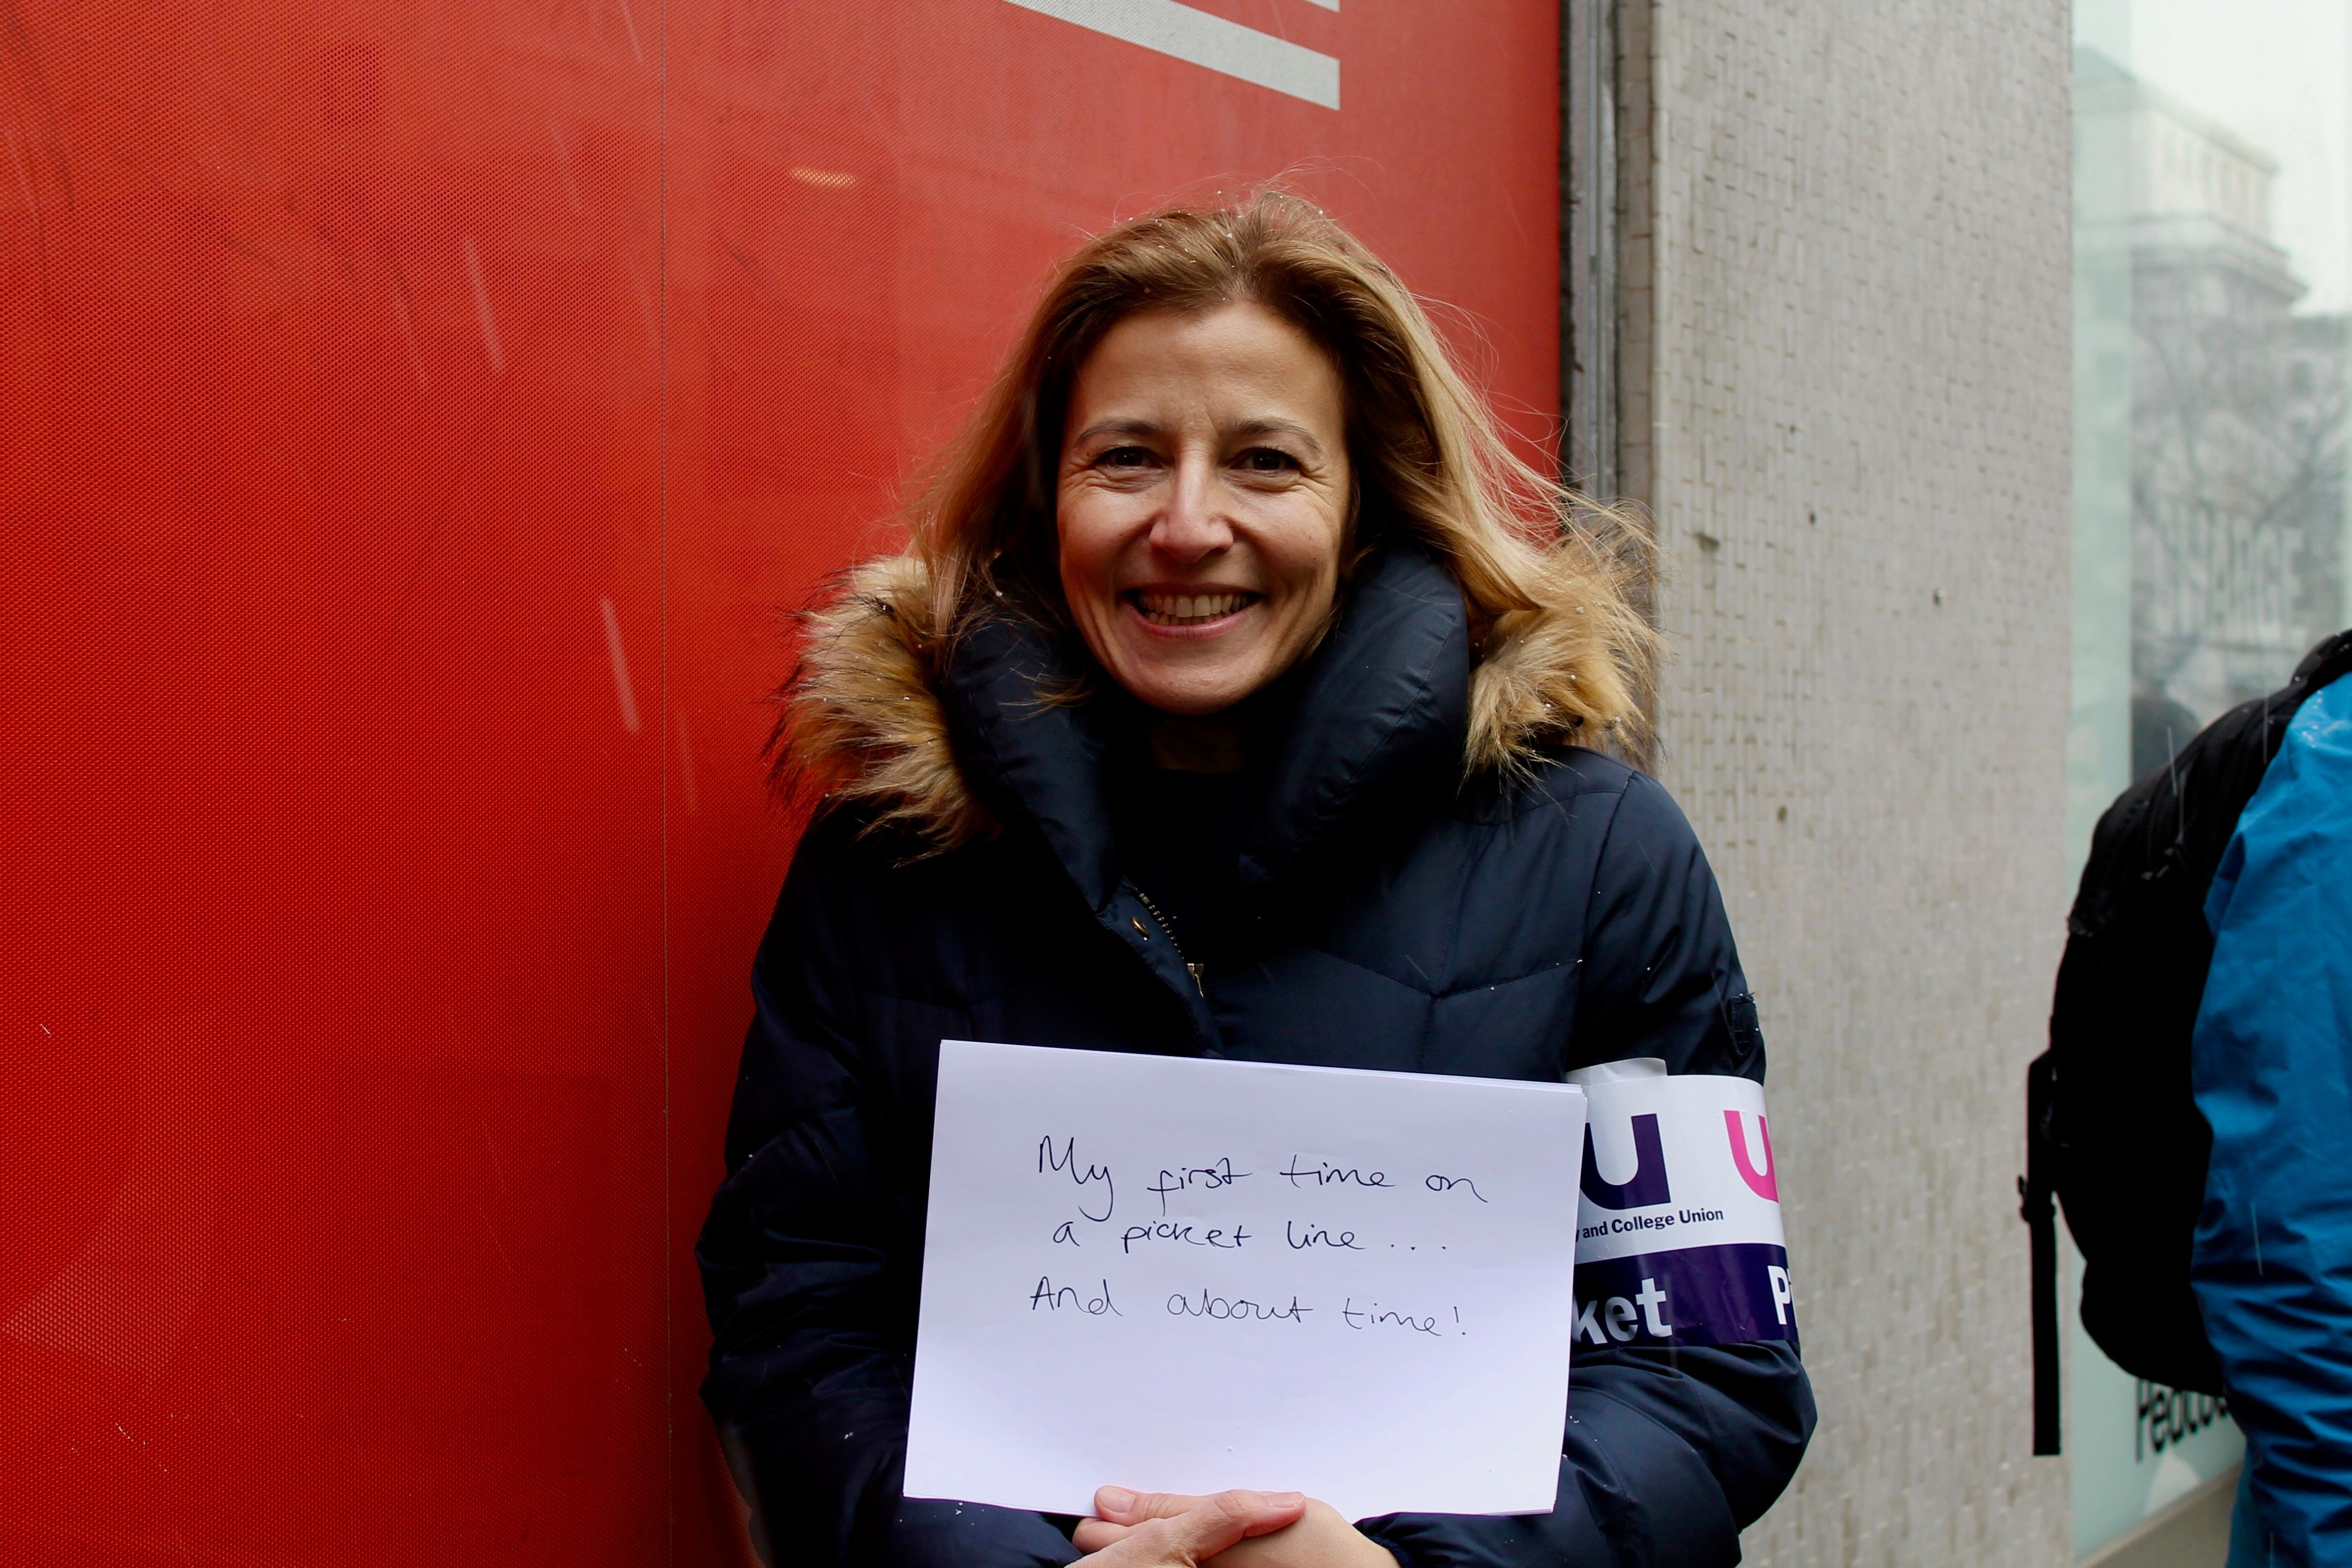 My first time on
a picket line...
And about time!
U U
and College Union
ket P